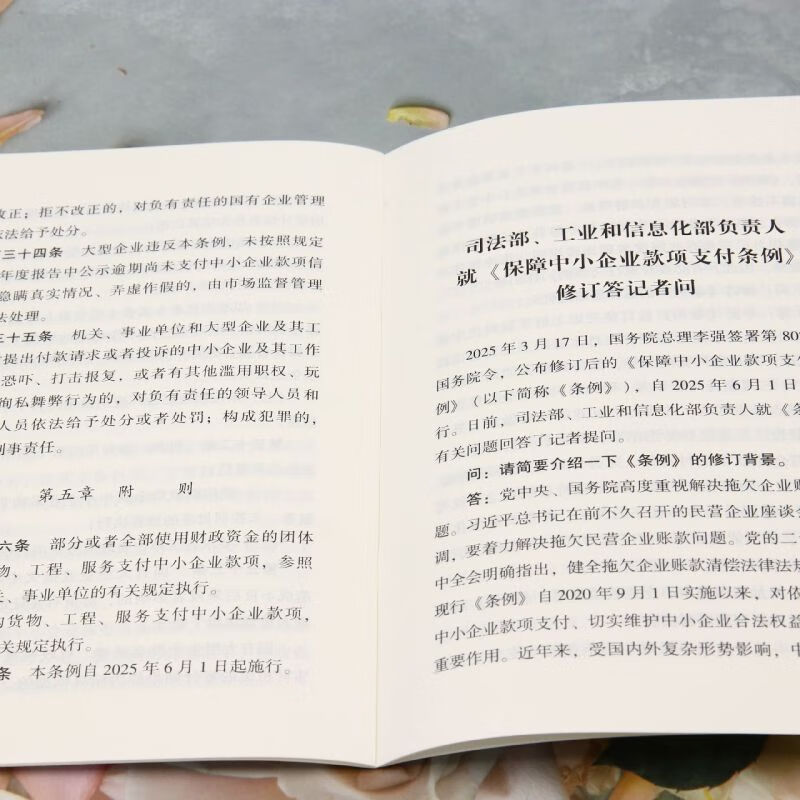 改正；拒不改正的，对负有责任的国有企业管理
依法给予处分。
三十四条 大型企业违反本条例，未按照规定
年度报告中公示逾期尚未支付中小企业款项信
隐瞒真实情况、弄虚作假的，由市场监督管理
法处理。
三十五条 机关、事业单位和大型企业及其工
提出付款请求或者投诉的中小企业及其工作
恐吓、打击报复，或者有其他滥用职权、玩
徇私舞弊行为的，对负有责任的领导人员和
人员依法给予处分或者处罚；构成犯罪的，
刑事责任。
第五章 附 则
六条 部分或者全部使用财政资金的团体
物、工程、服务支付中小企业款项，参照
关、事业单位的有关规定执行。
购货物、工程、服务支付中小企业款项，
关规定执行。
条 本条例自 2025 年 6 月 1 日起施行。
司法部、工业和信息化部负责人
就《保障中小企业款项支付条例》
修订答记者问
2025 年 3 月 17 日，国务院总理李强签署第 80
国务院令，公布修订后的《保障中小企业款项支付
例》（以下简称《条例》），自 2025 年 6 月 1 日
行。日前，司法部、工业和信息化部负责人就《条
有关问题回答了记者提问。
问：请简要介绍一下《条例》的修订背景。
答：党中央、国务院高度重视解决拖欠企业账
题。习近平总书记在前不久召开的民营企业座谈会
调，要着力解决拖欠民营企业账款问题。党的二
中全会明确指出，健全拖欠企业账款清偿法律法规
现行《条例》自 2020 年 9 月 1 日实施以来，对依
中小企业款项支付、切实维护中小企业合法权益
重要作用。近年来，受国内外复杂形势影响，中